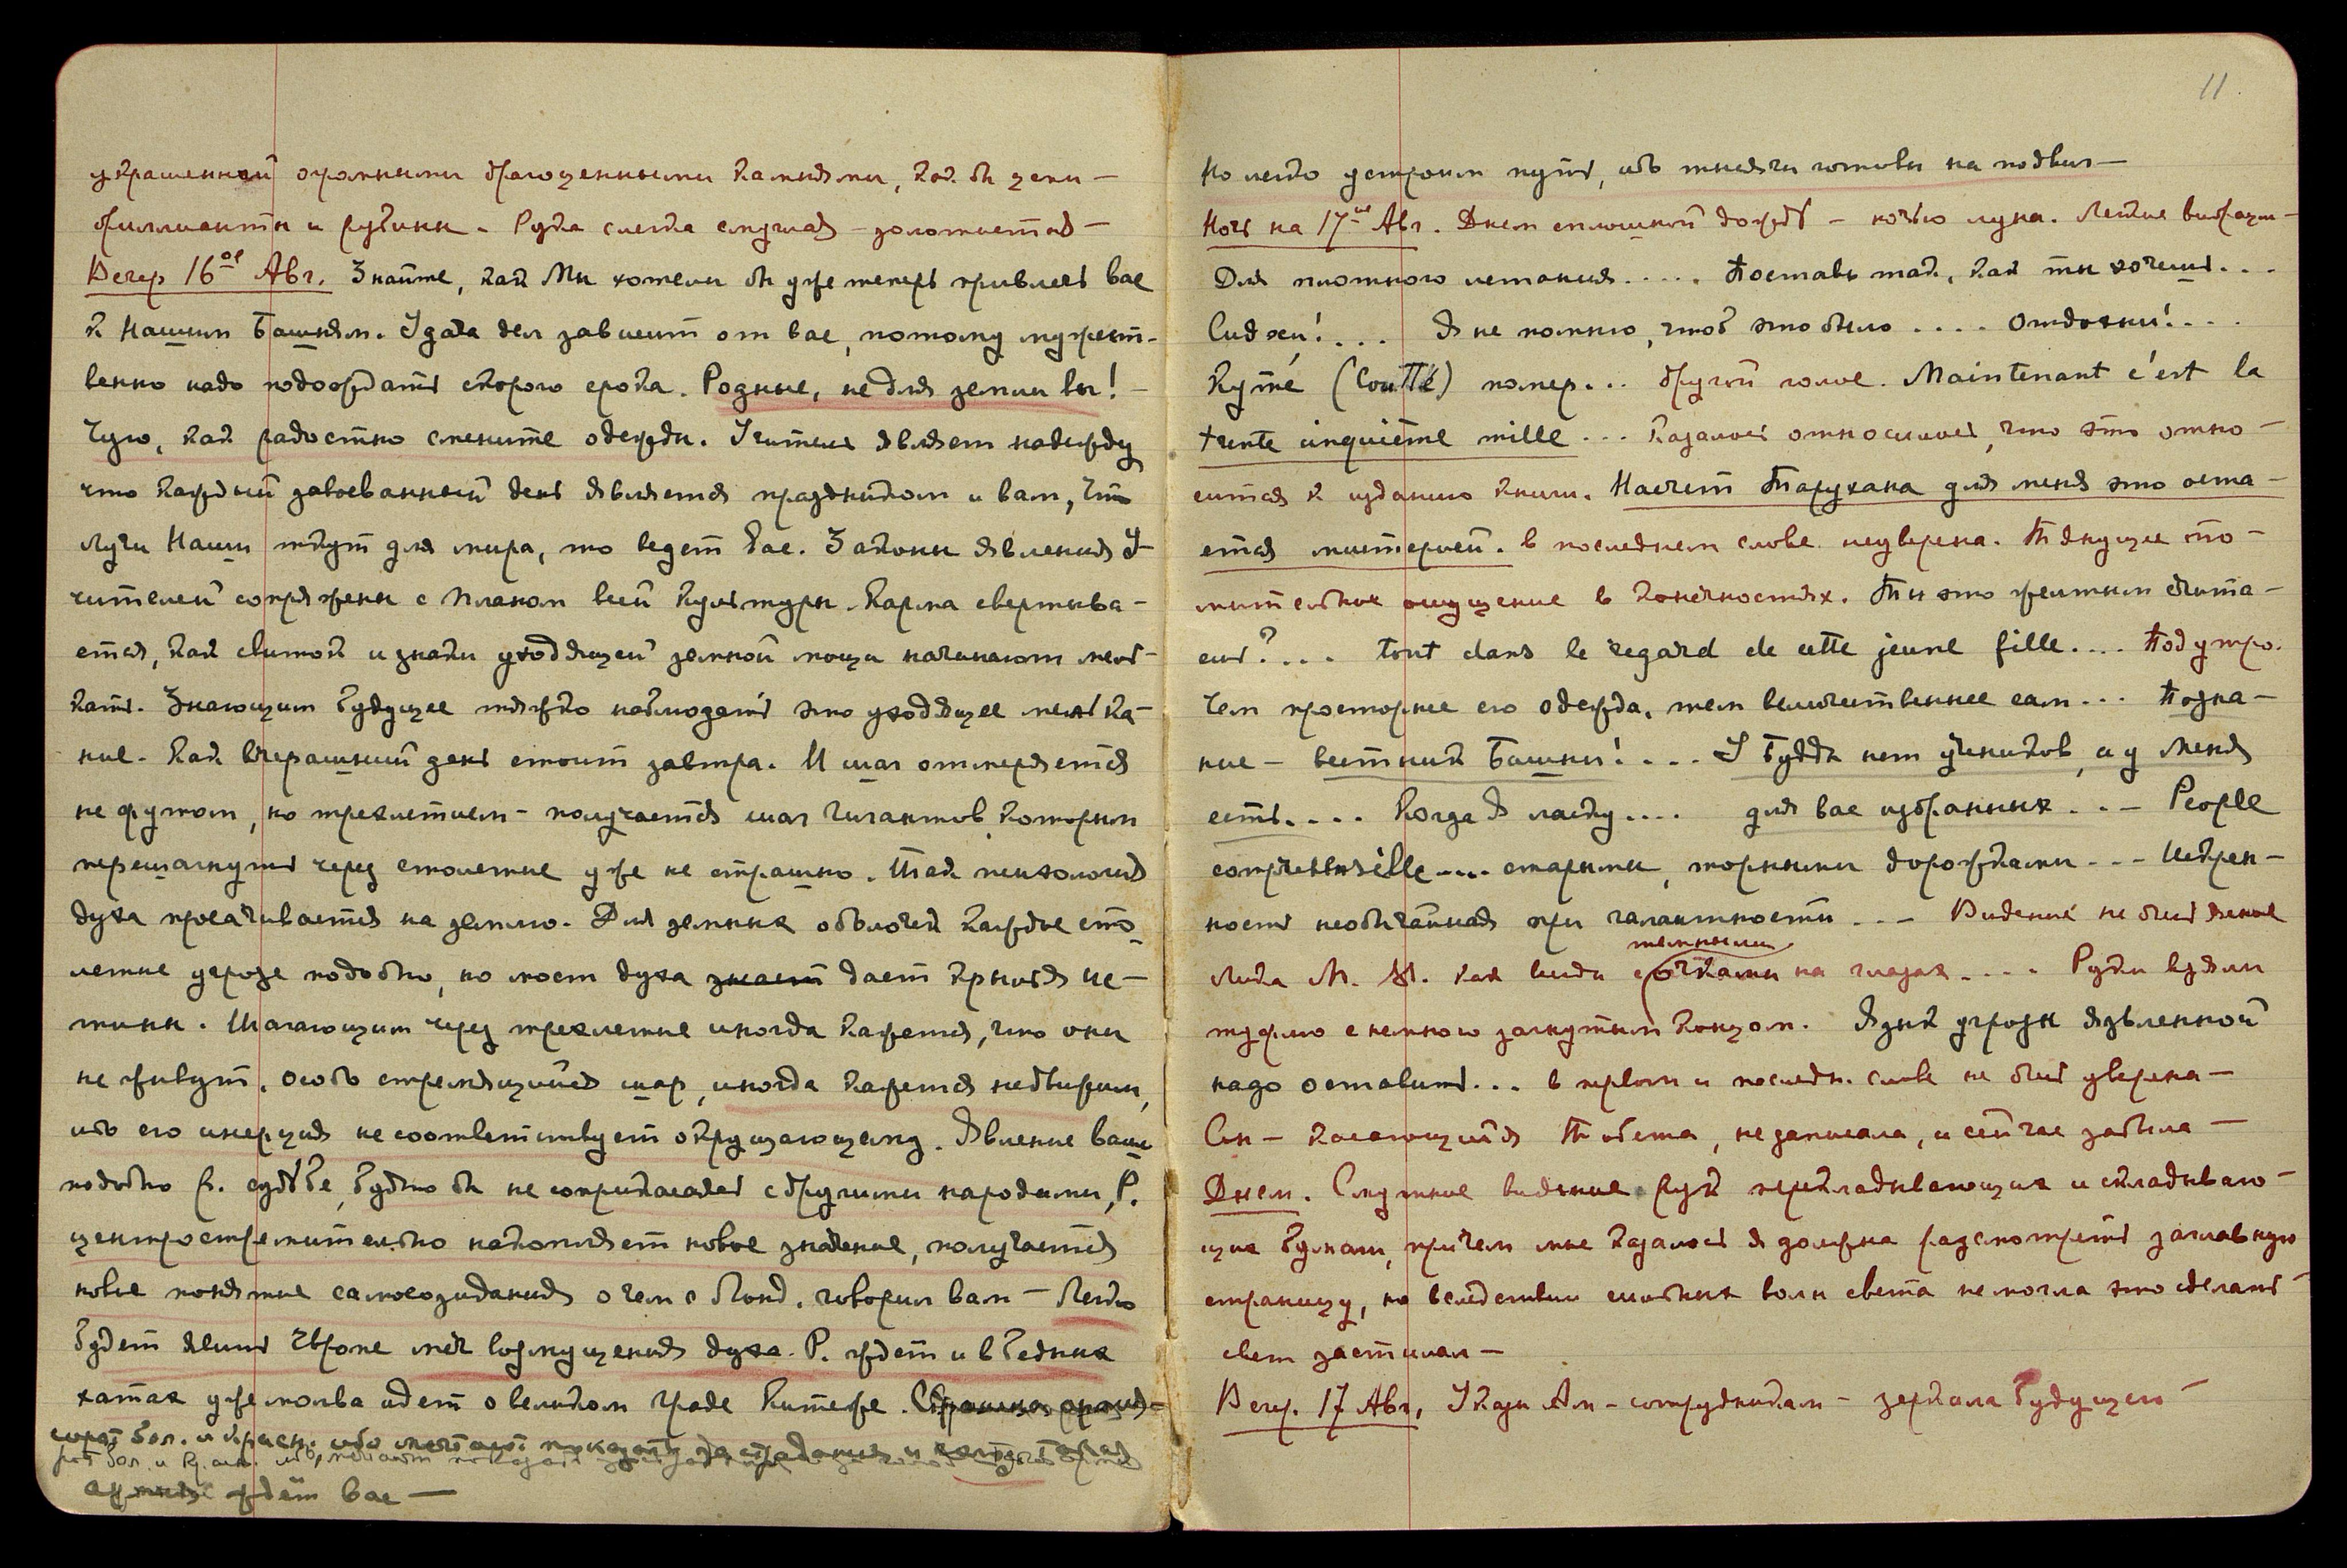 украшенный огромными драгоценными камнями, как бы цепи —
бриллианты и рубины. Рука слегка смуглая — золотистая —
Вечер 16ое Авг. Знайте, как Мы хотели бы уже теперь привлечь вас
к Нашим Башням. Удача дел зависит от вас, потому мужест-
венно надо подождать скорого срока. Родные, не для земли вы!
Чую, как радостно смените одежды. Учитель являет надежду
что каждый завоеванный день является праздником и вам, что
Лучи Наши ткут для мира, то ведет Вас. Законы явления У-
чителей сопряжены с Планом всей Культуры. Карма свертыва-
ется, как свиток и знаки уходящей земной мощи начинают мель-
кать. Знающим будущее тяжко наблюдать это уходящее мелька-
ние. Как вчерашний день стоит завтра. И шаг отмеряется
не футом, но трехлетием — получается шаг гигантов, которым
перешагнуть через столетие уже не страшно. Так психология
духа просачивается на землю. Для земных оболочек каждое сто-
летие угрозе подобно, но мост духа знает дает крылья Ис-
тины. Шагающим через трехлетие иногда кажется, что они
не живут. Особо стремящийся шар, иногда кажется недвижим,
ибо его инерция не соответствует окружающему. Явление ваше
подобно Р. судьбе, будто бы не соприкасаясь с другими народами, Р.
центростремительно накопляет новое значение, получается
новое понятие самосозидания о чем с Лонд. говорил вам — Легко
будет явить Европе меч возмущения духа. Р. ждет и в бедных
хатах уже молва идет о великом граде Китеже.
ждёт вас —
11
Но легко устроим путь, ибо тысячи готовы на подвиг —
Ночь на 17ое Авг. Днем сплошной дождь — ночью луна. Легкие вибрации —
Для плотного летания..... Поставь так, как ты хочешь...
Сидхи!.... Я не помню, чтоб это было.... Отдохни!....
Кутé (Couttè) помер... другой голос. Maintenant c'est la
trente cinquième mille... Казалось относилось, что это отно-
сится к изданию книги. Насчет Тарухана для меня это оста-
ется мистерией. в последнем слове неуверена. Тянущее то-
мительное ощущение в конечностях. Ты это желтым счита-
ешь?.... tout dans le regard de cette jeune fille.... Под утро.
Чем просторнее его одежда, тем величественнее сам... Позна-
ние — вестник Башни!.... У Будды нет учеников, а у Меня
есть.... Когда я лажу.... для вас избранных... — People
старыми, торными дорожками... — Искрен-
ность необычайная при галантности... — Видение не
Лика М. М. как виды с очками на глазах.... Руки взяли
темными
туфлю с немного загнутым концом. Язык угрозы явленной
надо оставить... в первом и последн. слове не была уверена —
Сн — касающийся Тибета, не записала, и сейчас забыла —
Днем. Смутное видение рук перекладывающих и складываю-
щих бумаги, причем мне казалось я должна разсмотреть заглавную
страницу, но вследствии сильных волн света не могла это сделать —
свет застилал —
Вечер. 17 Авг. Укажи Ам — сотрудникам — зеркала будущего